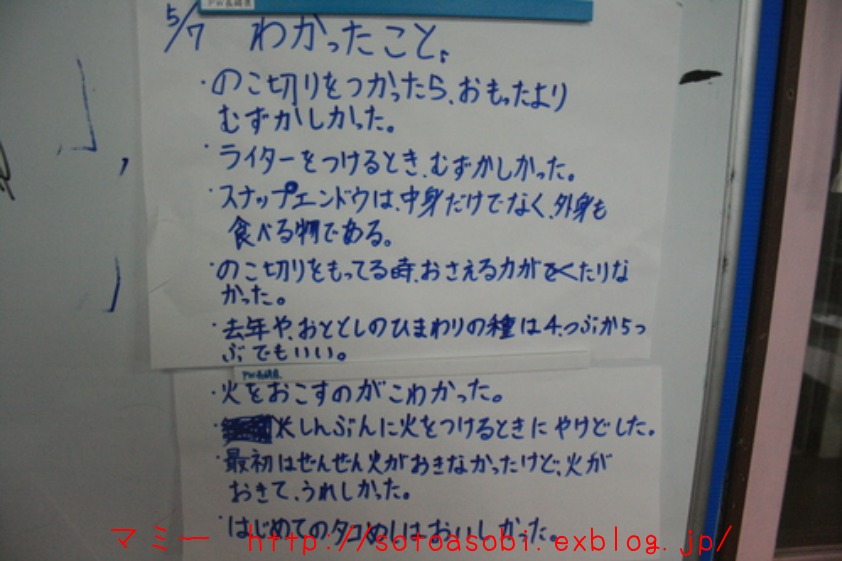 5/7 わかったこと、
・のこ切りをつかったら、おもったより
むずかしかった。
・ライターをつけるとき、むずかしかった。
・スナップエンドウは、中身だけでなく、外身も
食べる物である。
・のこ切りをもってる時、おさえる力がたりな
かった。
・去年や、おととしのひまわりの種は4つぶか5つ
ぶでもいい。
・火をおこすのがこわかった。
・しんぶんに火をつけるときにやけどした。
・最初はぜんぜん火がおきなかったけど、火が
おきて、うれしかった。
・はじめてのタコめしはおいしかった。
マミー http://sotoasobi.exblog.jp/